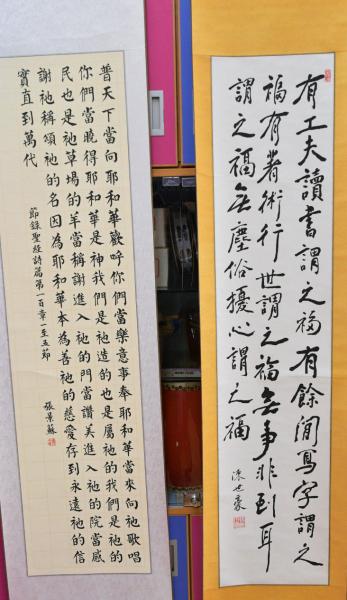 有工夫讀書謂之福有餘閒寫字謂之
福有著術行世謂之福無事非到耳
謂之福無塵俗擾心謂之福
世豪
普天下當向耶和華歡呼你們當樂意事奉耶和華當來向祂歌唱
你們當曉得耶和華是神我們是祂造的也是屬祂的我們是祂的
民也是祂草場的羊當稱謝進入祂的門當讚美進入祂的院當感
謝祂稱頌祂的名因為耶和華本為善祂的慈愛存到永遠祂的信
實直到萬代
節錄聖經詩篇第一百章一至五節
張景蘇